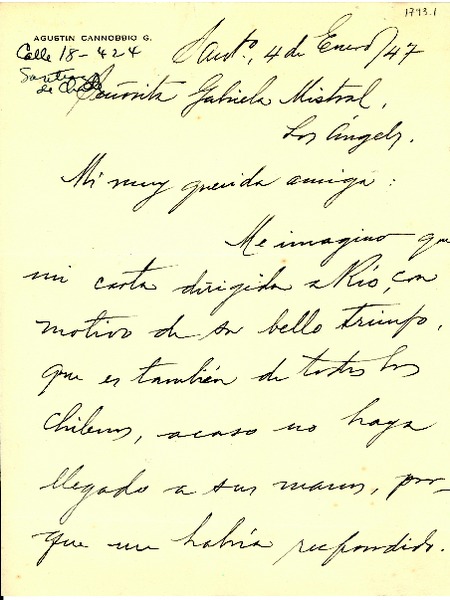 1793.1
AGUSTIN CANNOBBIO G.
Calle 18 - 424
Santiago
de Chile
Santº, 4 de Enero/47
Señorita Gabriela Mistral,
Los Ángels.
Mi muy querida amiga:
Me imagino que
mi carta dirigida a Río, con
motivo de su bello triunfo,
que es también de todos los
chilenos, acaso no haya
llegado a sus manos, por-
que me habría respondido.